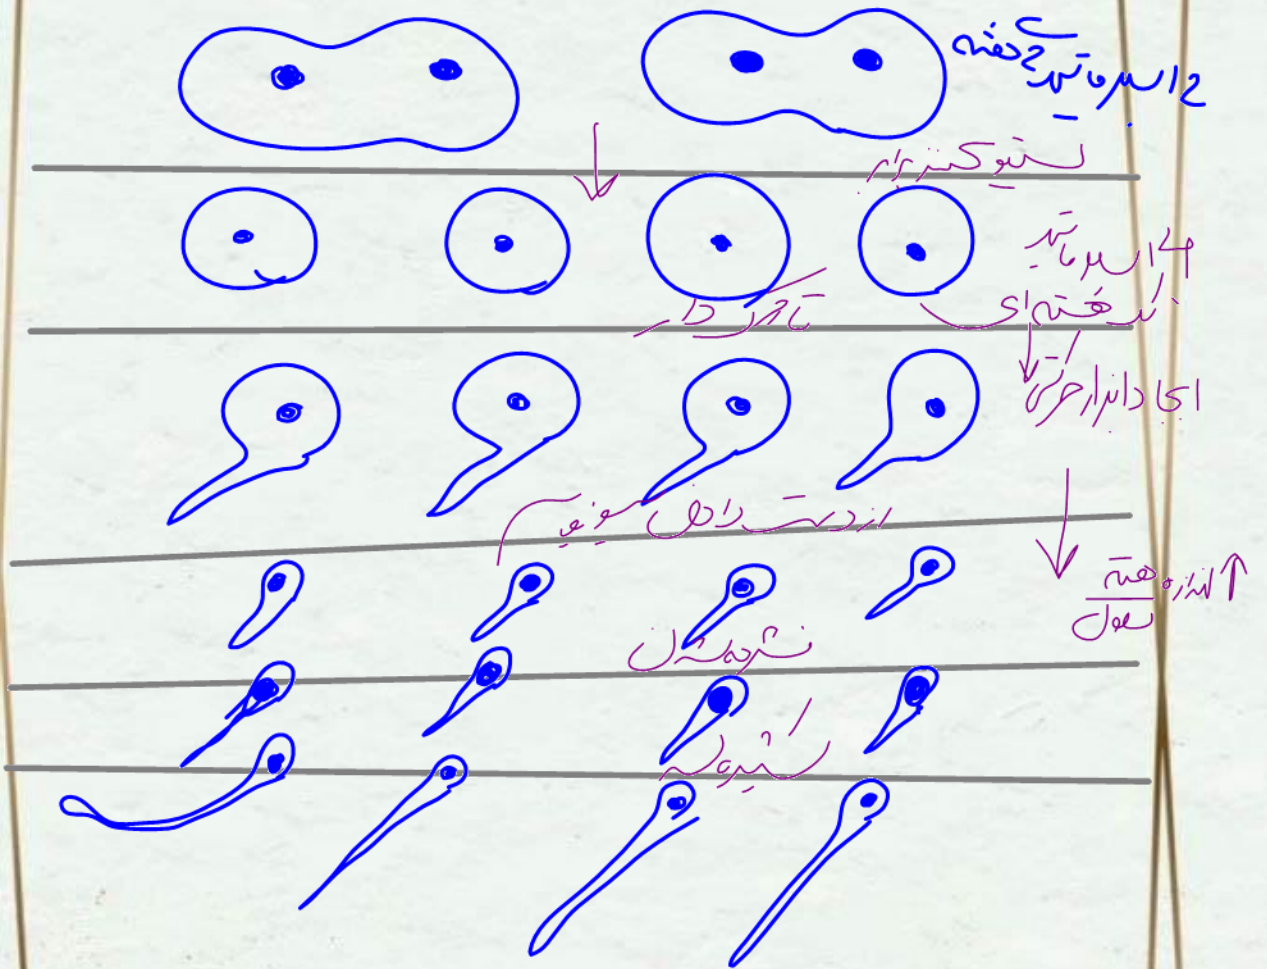 ۲ اسپرماتید
۲ هسته
سیتوکینز برابر
۴ اسپرماتید
تک هسته‌ای
تاژک دار
ایجاد ابزار حرکتی
از دست دادن سیتوپلاسم
↑ اندازه هسته
سلول
فشرده شدن
کشیده